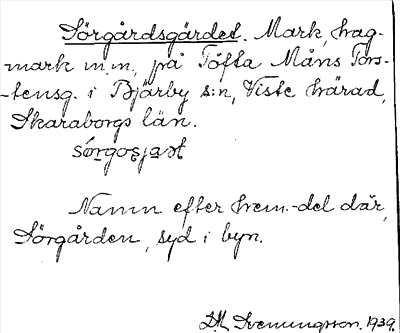 Sörgårdsgärdet. Mark, hag-
mark m.m., på Töfta Måns Tors-
-tensg. i Bjärby s:n, Viste härad,
Skaraborgs län.
Namn efter hem.-del där,
Sörgården, syd i byn.
Svenningsson. 1939.